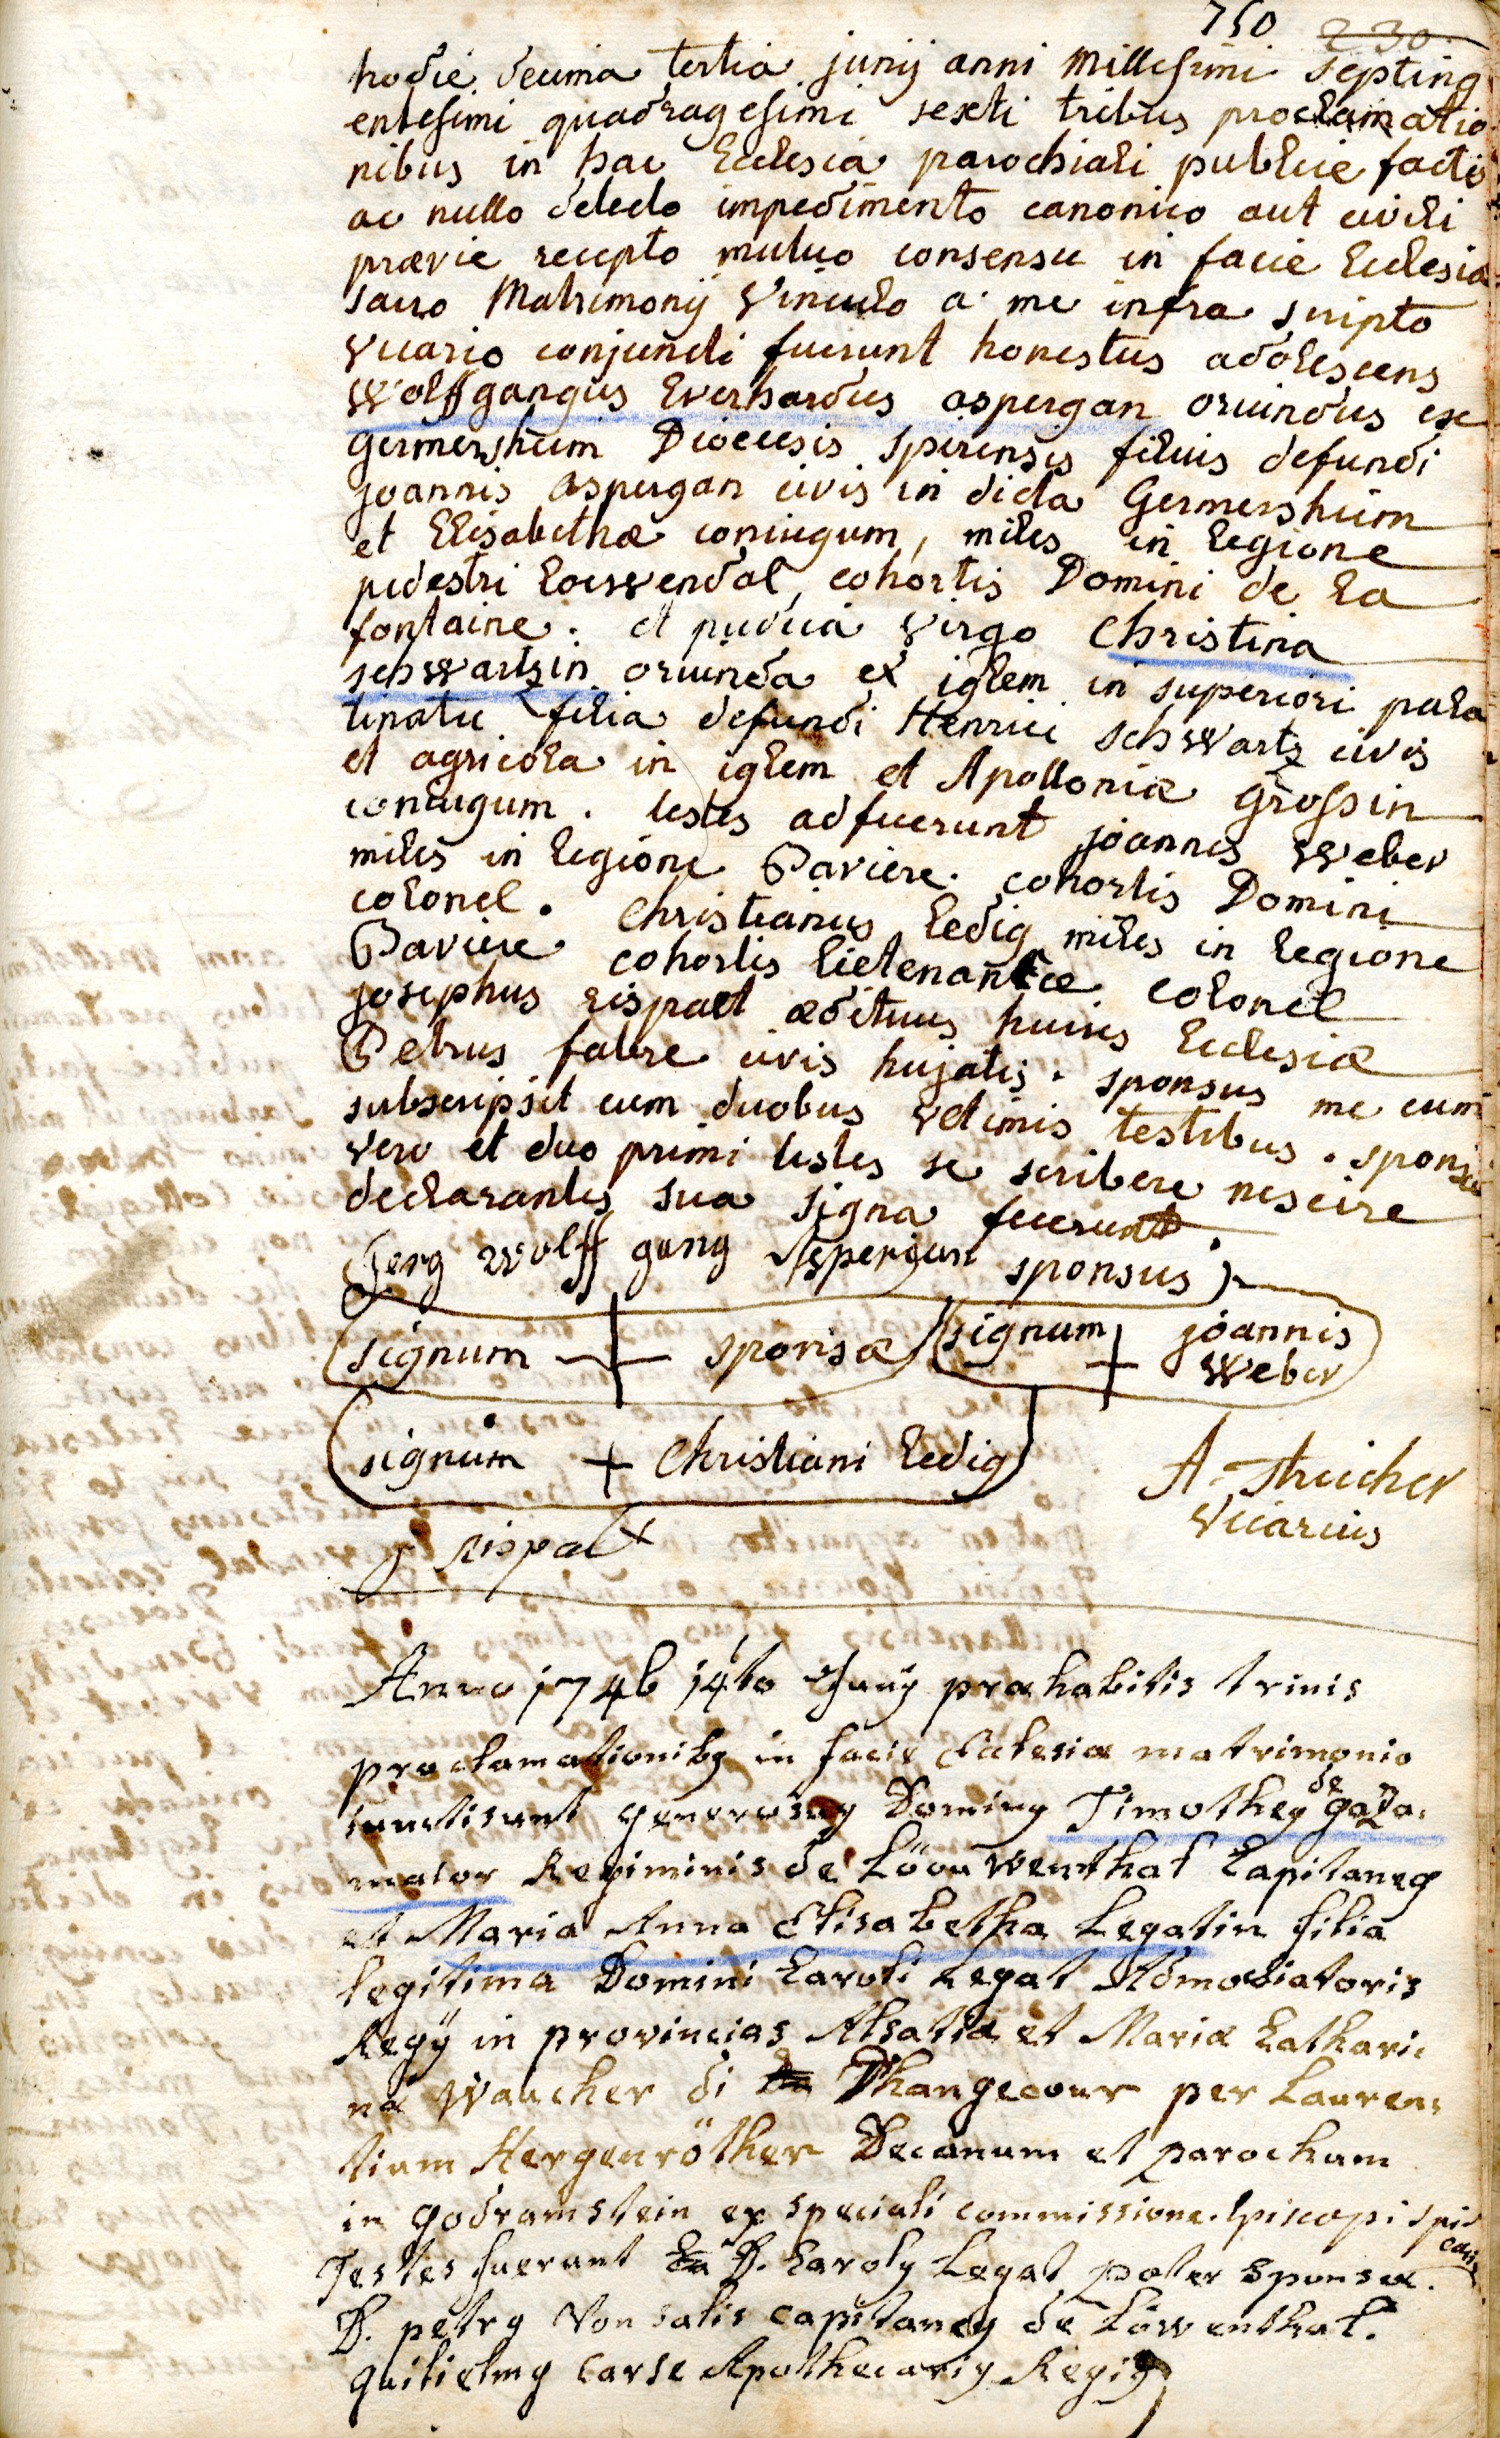 750 230
hodie decima tertia junij anni Millesimi septing
entesimi quadragesimi sexti tribus proclamatio
nibus in hac Ecclesia parochiali publice factis
ac nullo detecto impedimento canonico aut civili
prævie recepto mutuo consensu in facie Ecclesia
sacro Matrimonij Vinculo a me infra scripto
Vicario conjuncti fuerunt honestus adolescens
Wolffgangus Everhardus aspergan oriundus ex
germersheim Diœcesis spirensis filius defuncti
joannis Aspergan civis in dicta Germersheim
et Elisabethæ coniugum, miles in legione
pedestri Loewendal, cohortis Domini de la
fontaine. et pudica virgo Christina
schwartzin oriunda ex iglem in superiori pala
tinatu filia defuncti Henrici schwartz civis
et agricola in iglem et Apolloniæ Grossin
coniugum. testes adfuerunt joannes Weber
miles in legione Baviere. cohortis Domini
colonel. Christianus Ledig miles in legione
Baviere cohortis lietenantce colonel
josephus rispalt ædituus huius Ecclesiæ
Petrus fabre civis hujatis. sponsus me cum
subscripsit cum duobus vltimis testibus. sponsa
vero et duo primi testes se scribere nescire
declarantes sua signa fecerunt.
Jerg Wolff gang Aspergan sponsus
signum + sponsæ signum + joannis
Weber
signum + Christiani Ledig
A. Streicher
Vicarius
J rispalt
Anno 1746 14to Junÿ præhabitis trinis
proclamationibg in facie Ecclesiæ matrimonio
iuncti sunt generosus Dominus Timotheus de gaza
mator Regiminis de Löouwenthal Capitaneus
et Maria Anna Elisabetha Legatin filia
legitima Domini Caroli Legat Admodiatoris
Regÿ in provincias Alsatiæ et Mariæ Cathari
næ Waucher di Dhangecour per Lauren
tium Hergenröther Decanum et parochum
in godramstein ex speciali commissione. Episcopi spi
Testes fuerunt D. Carolus Legat pater sponsæ.
D. petrus Von salis capitaneus de Löwenthal.
guilielmus carse Apothecarius Regius